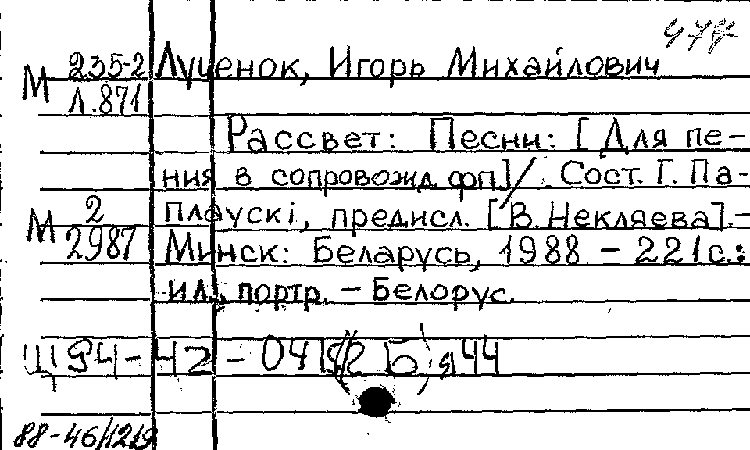 М 235-2
Л.871
Лученок, Игорь Михайлович
Рассвет: Песни: [Для пе-
ния в сопровожд. фп] / Сост. Г. Па-
М 2
2987
плаускі, предисл. [В. Некляева].-
Минск: Беларусь, 1988 - 221с.:
ил., портр. - Белорус.
Щ 94-42-04
я44